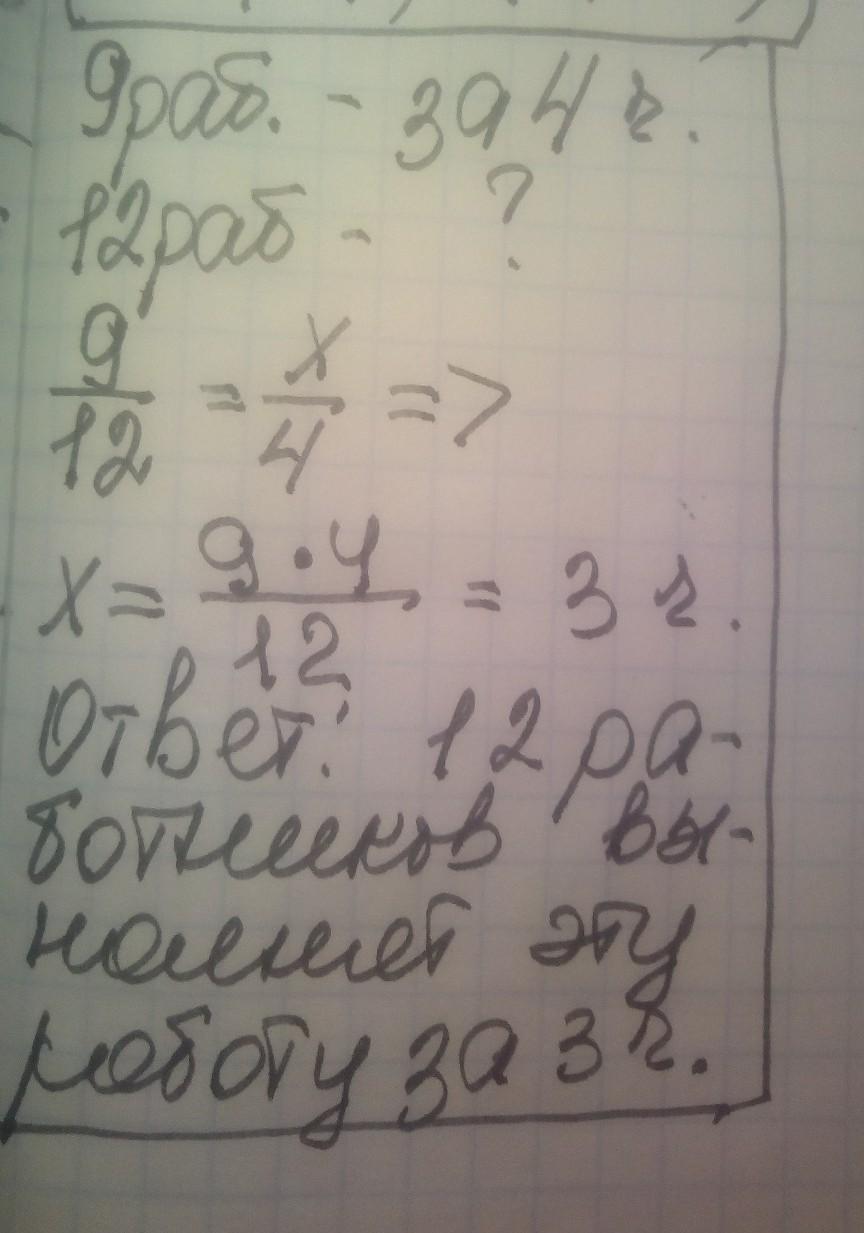 9раб. - за 4 ч.
12раб - ?
9/12 = x/4 =>
x = 9·4/12 = 3 ч.
Ответ: 12 ра-
ботников вы-
полнит эту
работу за 3 ч.